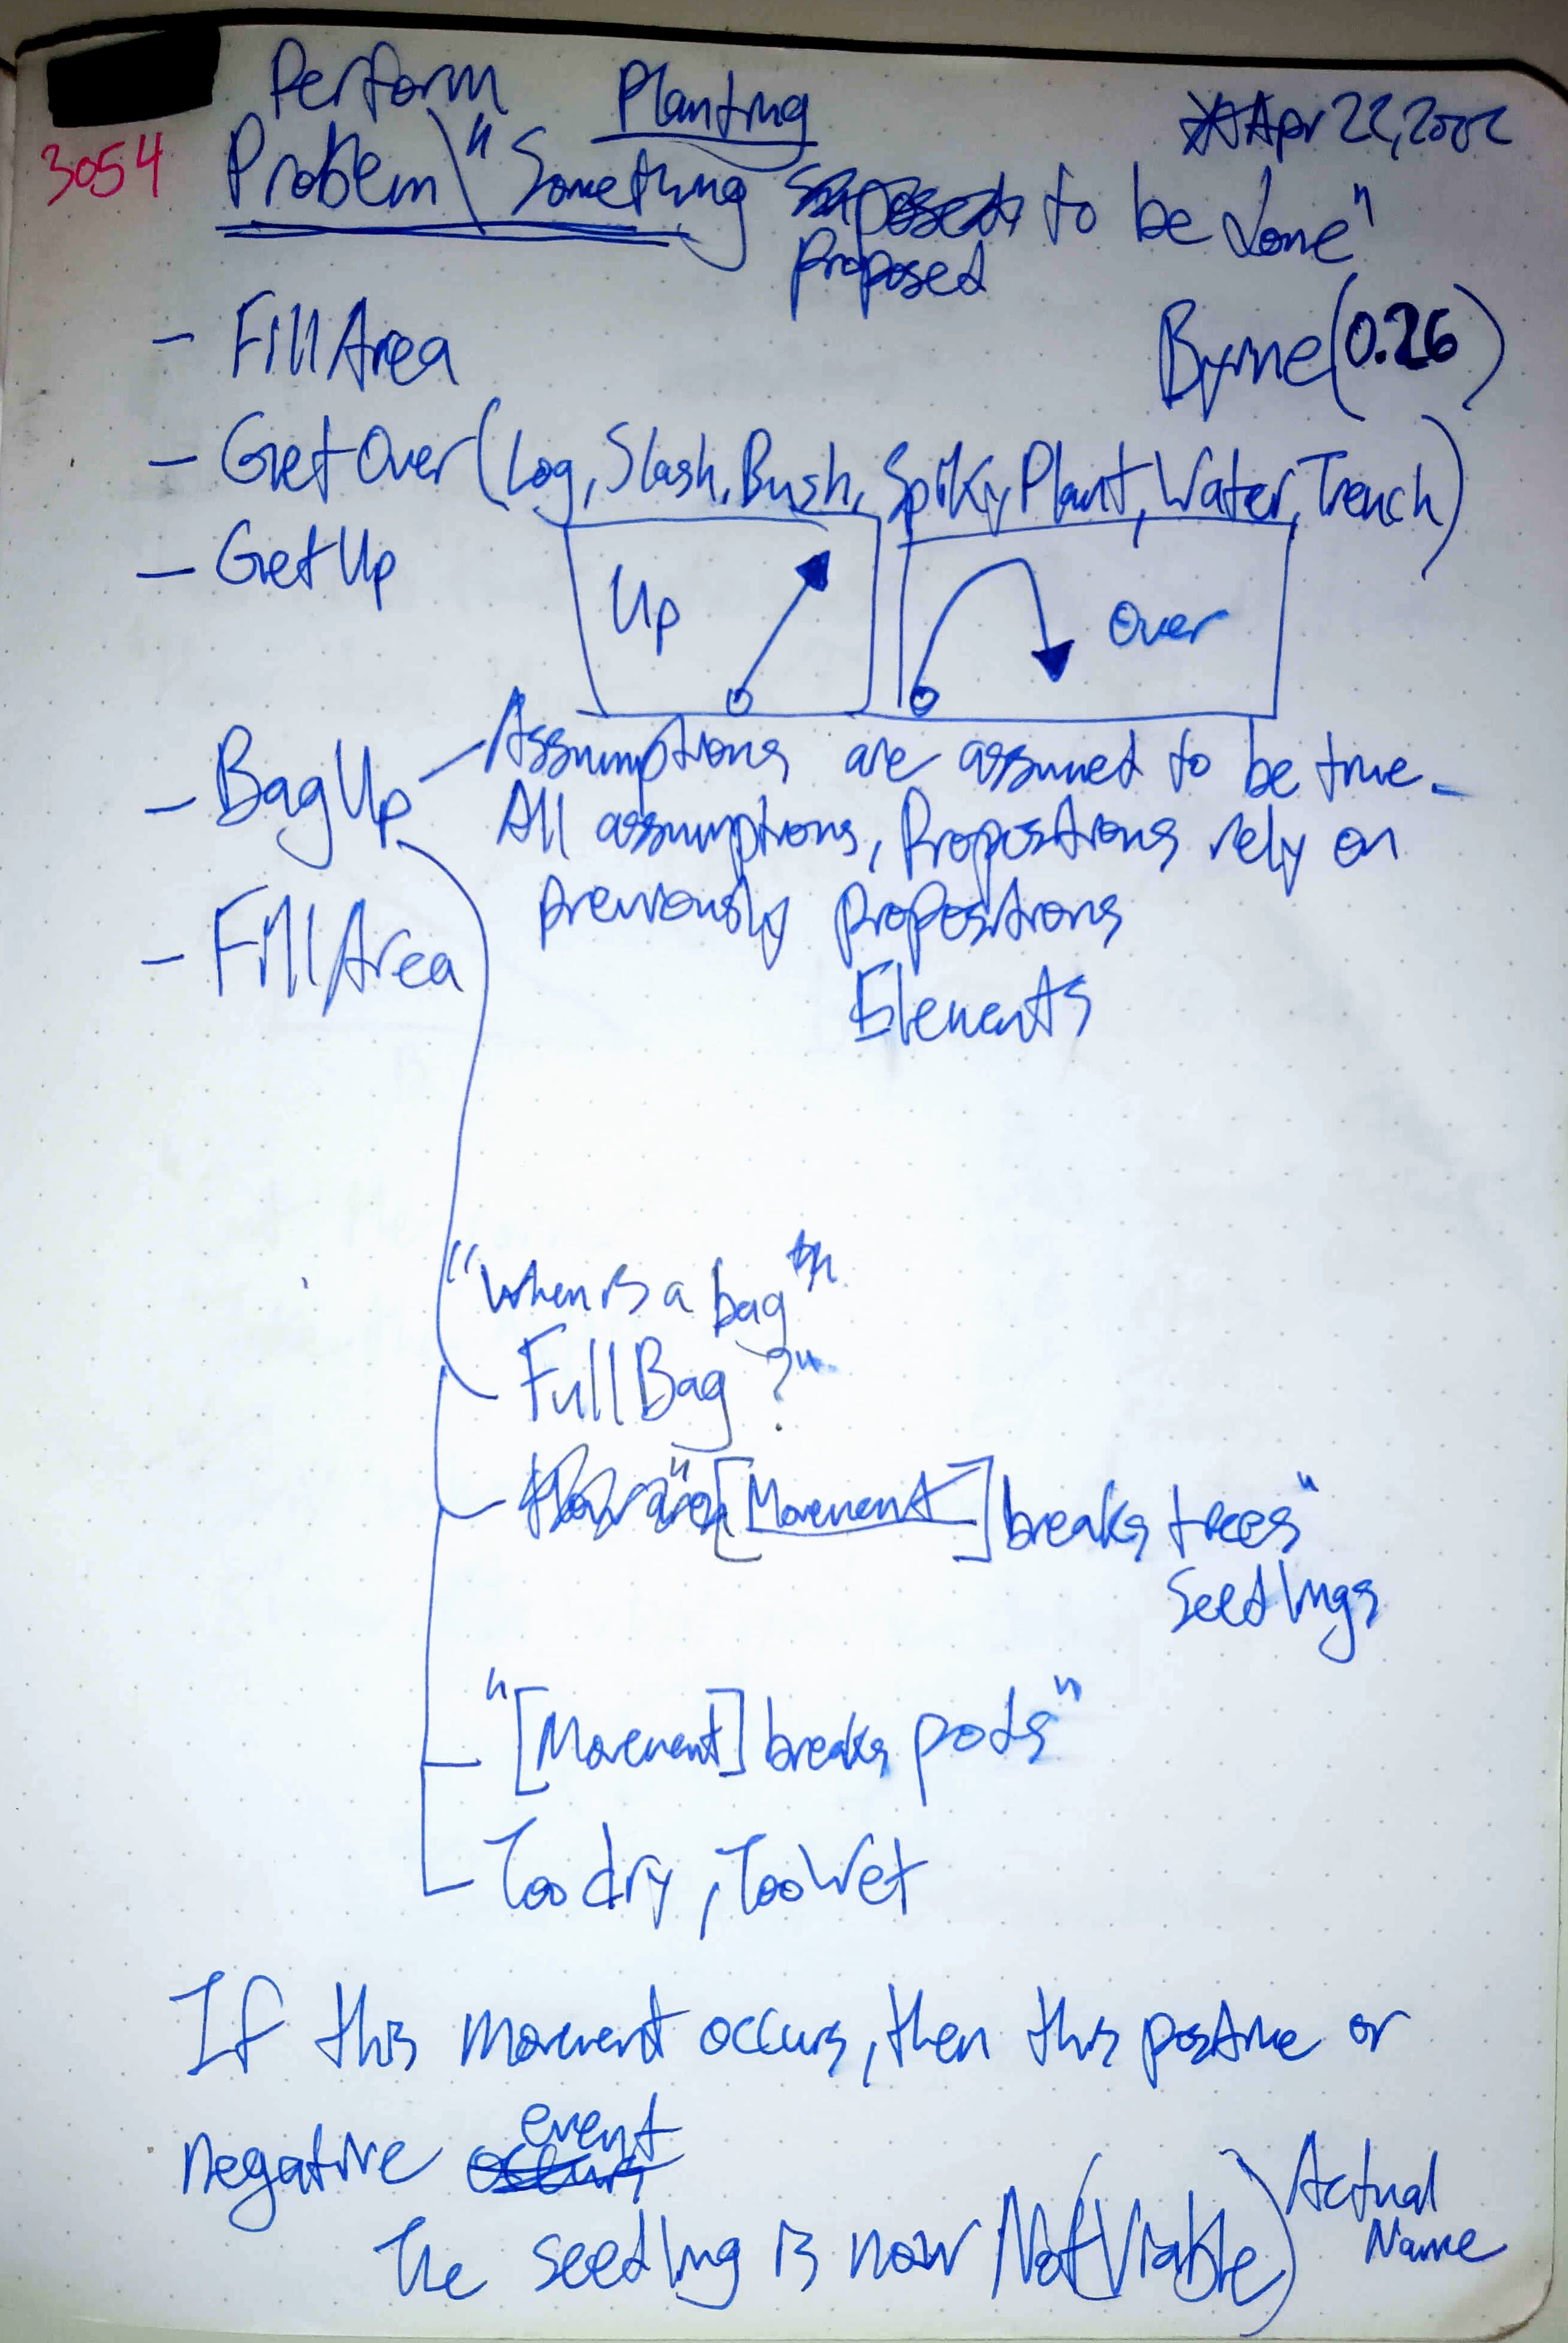 Perform Planting
3054 Problem \ "Something to be done"
Proposed
Apr 22, 2022
- FillArea
Byrne(0.26)
- GetOver(Log, Slash, Bush, SpikyPlant, Water, Trench)
- GetUp
Up
Over
- BagUp - Assumptions are assumed to be true.
All assumptions, Propositions rely on
previously propositions
Elements
- FillArea
"When is a bag"
FullBag ?"
"[Movement] breaks trees"
Seedlings
"[Movement] breaks pods"
Too dry, TooWet
If this movement occurs, then this positive or
negative event
The seedling is now Not(Viable) Actual
Name